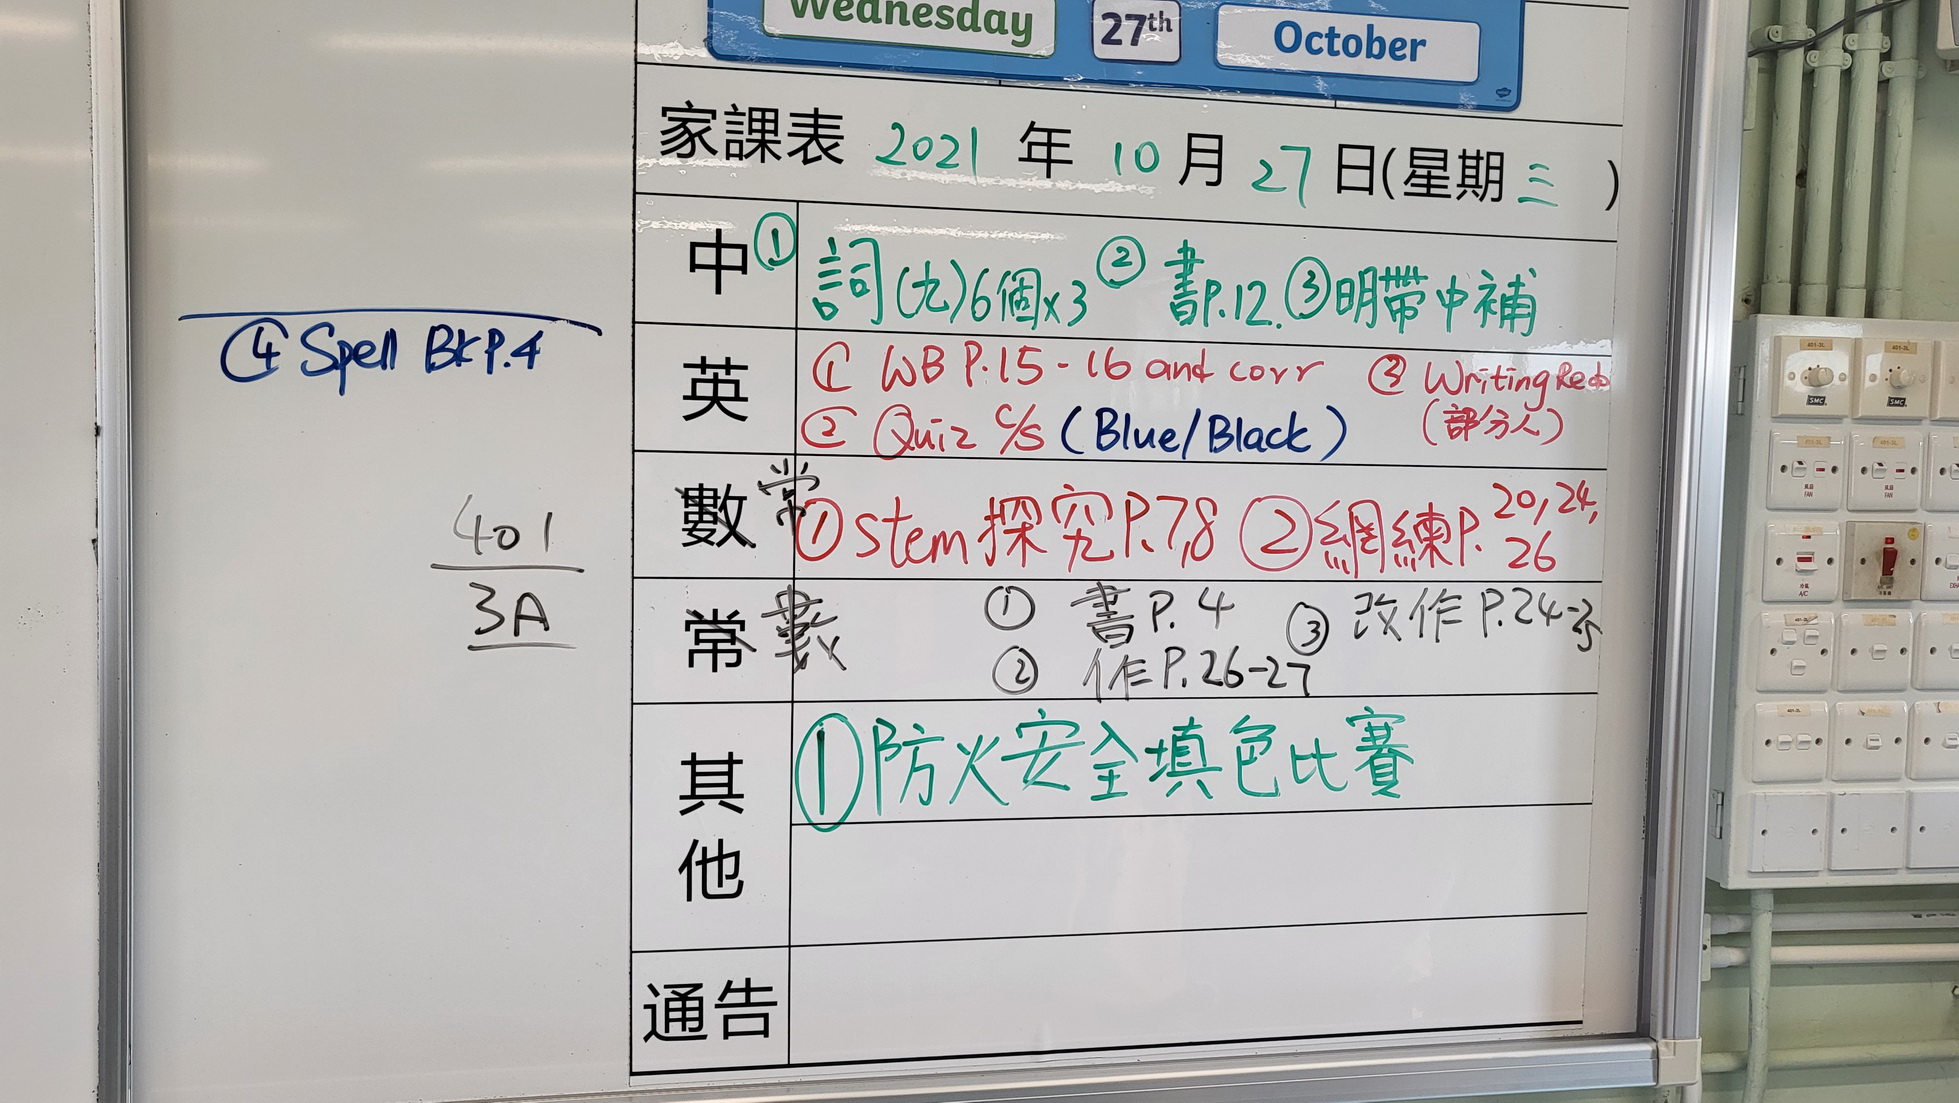 Wednesday 27th October
家課表 2021 年 10 月 27 日(星期 三 )
中 ① 詞(九)6個x3 ② 書P.12. ③明帶中補
英 ① WB P.15-16 and corr ③ Writing Redo
② Quiz c/s (Blue/Black) (部分人)
④ Spell Bk P.4
數 常 ① stem探究P.7,8 ② 網練P. 20,24,
26
401
3A
常 數 ① 書P.4 ③ 改作P.24-25
② 作P.26-27
其他 ①防火安全填色比賽
通告